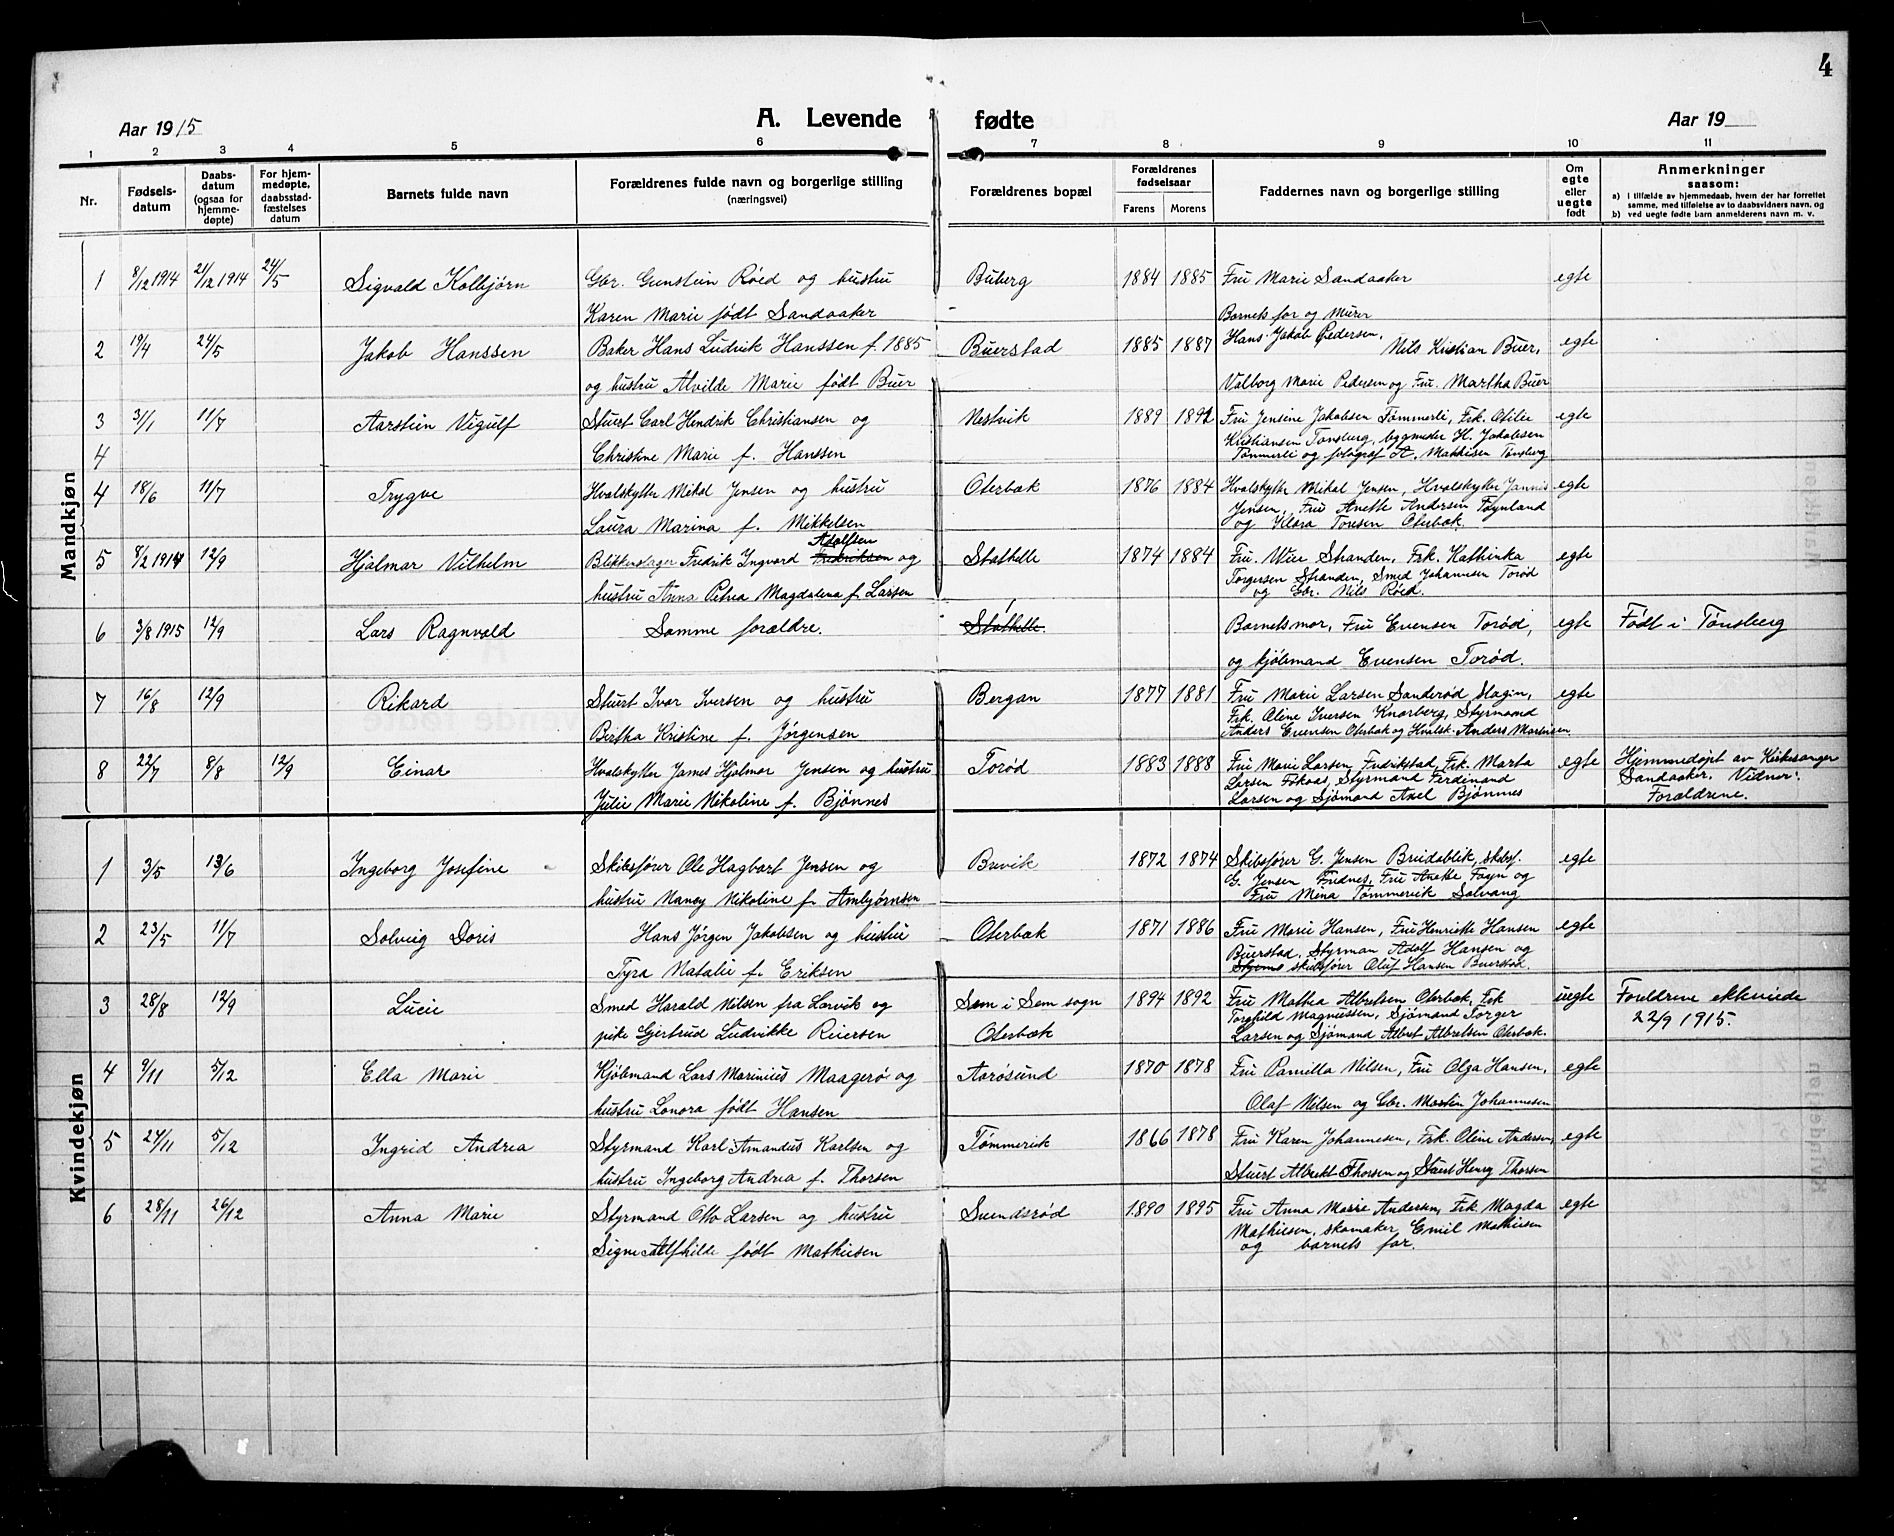 4
Aar 1915 A. Levende fødte Aar 19
1 2 3 4 5 6 7 8 9 10 11
Nr. Fødsels-datum Daabs-datum (ogsaa for hjemme-døpte) For hjem-medøpte, daabsstad-fæstelses datum Barnets fulde navn Forældrenes fulde navn og borgerlige stilling (næringsvei) Forældrenes bopæl Forældrenes fødselsaar Farens Morens Faddernes navn og borgerlige stilling Om egte eller uegte født Anmerkninger saasom: a) i tilfælde av hjemmedaab, hvem der har forrettet samme, med tilføielse av to daabsvidners navn, og b) ved uegte fødte barn anmelderens navn m. v.
Mandkjøn
1 8/12 1914 21/12 1914 24/5 Sigvald Kolbjørn Gbr. Gunstein Røed og hustru Buberg 1884 1885 Fru Marie Sandaaker egte
Karen Marie født Sandaaker Barnets far og Murer
2 19/4 24/5 Jakob Hanssen Baker Hans Ludvik Hanssen f. 1885 Buerstad 1885 1887 Hans Jakob Pedersen, Nils Kristian Buer, egte
og hustru Alvilde Marie født Buer Valborg Marie Pedersen og Fru. Martha Buer
3 31/1 11/7 Aarstein Vigulf Stuert Carl Hendrik Christiansen og Nestvik 1889 1892 Fru Jensine Jakobsen Tømmerli, Frk. Otilie egte
Kristiansen Tønsberg, bygmester H. Jakobsen
4 Christine Marie f. Hanssen Tømmerli og fotograf A. Mathisen Tønsberg
4 18/6 11/7 Trygve Hvalskytter Mikal Jensen og hustru Oterbæk 1876 1884 Hvalskytter Mikal Jensen, Hvalskytter Jannis egte
Jensen, Fru Anette Andersen Føynland
Laura Marina f. Mikkelsen og Klara Toresen Oterbæk.
Adolfsen
5 8/2 1914 12/9 Hjalmar Vilhelm Blikkenslager Fredrik Ingvard Fredriksen og Stathelle 1874 1884 Fru. Wiie Stranden, Frk. Kathinka egte
Torgersen Stranden, Smed Johannsen Torød
hustru Anna Petrea Magdalena f. Larsen og Gbr. Nils Røed.
6 3/8 1915 12/9 Lars Ragnvald Samme forældre. Stathelle. Barnets mor, Fru Evensen Torød, egte Født i Tønsberg
og kjøbmand Evensen Torød.
7 16/8 12/9 Rikard Stuert Ivar Iversen og hustru Bergan 1877 1881 Fru Marie Larsen Sanderød Slagen, egte
Frk. Oline Iversen Knarberg, Styrmand
Birtha Kristine f. Jørgensen Anders Evensen Oterbæk og Hvalsk. Anders Martinsen
8 22/7 8/8 12/9 Einar Hvalskytter James Hjalmar Jensen og hustru Torød 1883 1888 Fru Marie Larsen, Fredrikstad, Frk. Marta egte Hjemmedøpt av Kirkesanger
Larsen Fokaas, Styrmand Ferdinand Sandaaker. Vidner:
Julie Marie Nikoline f. Bjønnes Larsen og Sjømand Axel Bjønnes Forældrene.
Kvindekjøn
1 3/5 13/6 Ingeborg Josefine Skibsfører Ole Hagbart Jensen og Brevik 1872 1874 Skibsfører G. Jensen Breidablik, skibsf. egte
G. Jensen Frednes, Fru Anette Føyn og
hustru Nancy Nikoline f. Ambjørnsen Fru Mina Tømmervik Solvang
2 23/5 11/7 Solveig Doris Hans Jørgen Jakobsen og hustru Oterbæk 1871 1886 Fru Marie Hansen, Fru Henriette Hansen egte
Buerstad, Styrman Adolf Hansen og
Tyra Natalie f. Eriksen skibsfører Oluf Hansen Buerstad.
3 28/8 12/9 Lucie Smed Harald Nilsen fra Larvik og Sem i Sem sogn 1894 1892 Fru Mathea Albretsen Oterbæk, Frk uegte Foreldrene ekteviede
Torghild Magnussen, Sjømand Torger 22/9 1915.
pike Gjertrud Ludvikke Reiersen Oterbæk Larsen og Sjømand Albret Albretsen Oterbæk.
4 9/11 5/12 Ella Marie Kjøbmand Lars Marinius Maagerø og Aarøsund 1870 1878 Fru Pamilla Nilsen, Fru Olga Hansen, egte
hustru Lonora født Hansen Olaf Nilsen og Gbr. Martin Johannesen
5 24/11 5/12 Ingrid Andrea Styrmand Karl Amandus Karlsen og Tømmervik 1866 1878 Fru Karen Johannesen, Frk. Oline Andersen, egte
hustru Ingeborg Andrea f. Thorsen Stuert Albrekt Thorsen og Stuert Henry Thorsen
6 28/11 26/12 Anna Marie Styrmand Otto Larsen og hustru Svendsrød 1890 1895 Fru Anna Marie Andersen, Frk. Magda egte
Mathiesen, skomaker Emil Mathisen
Signe Alfhilde født Mathiesen og barnets far.